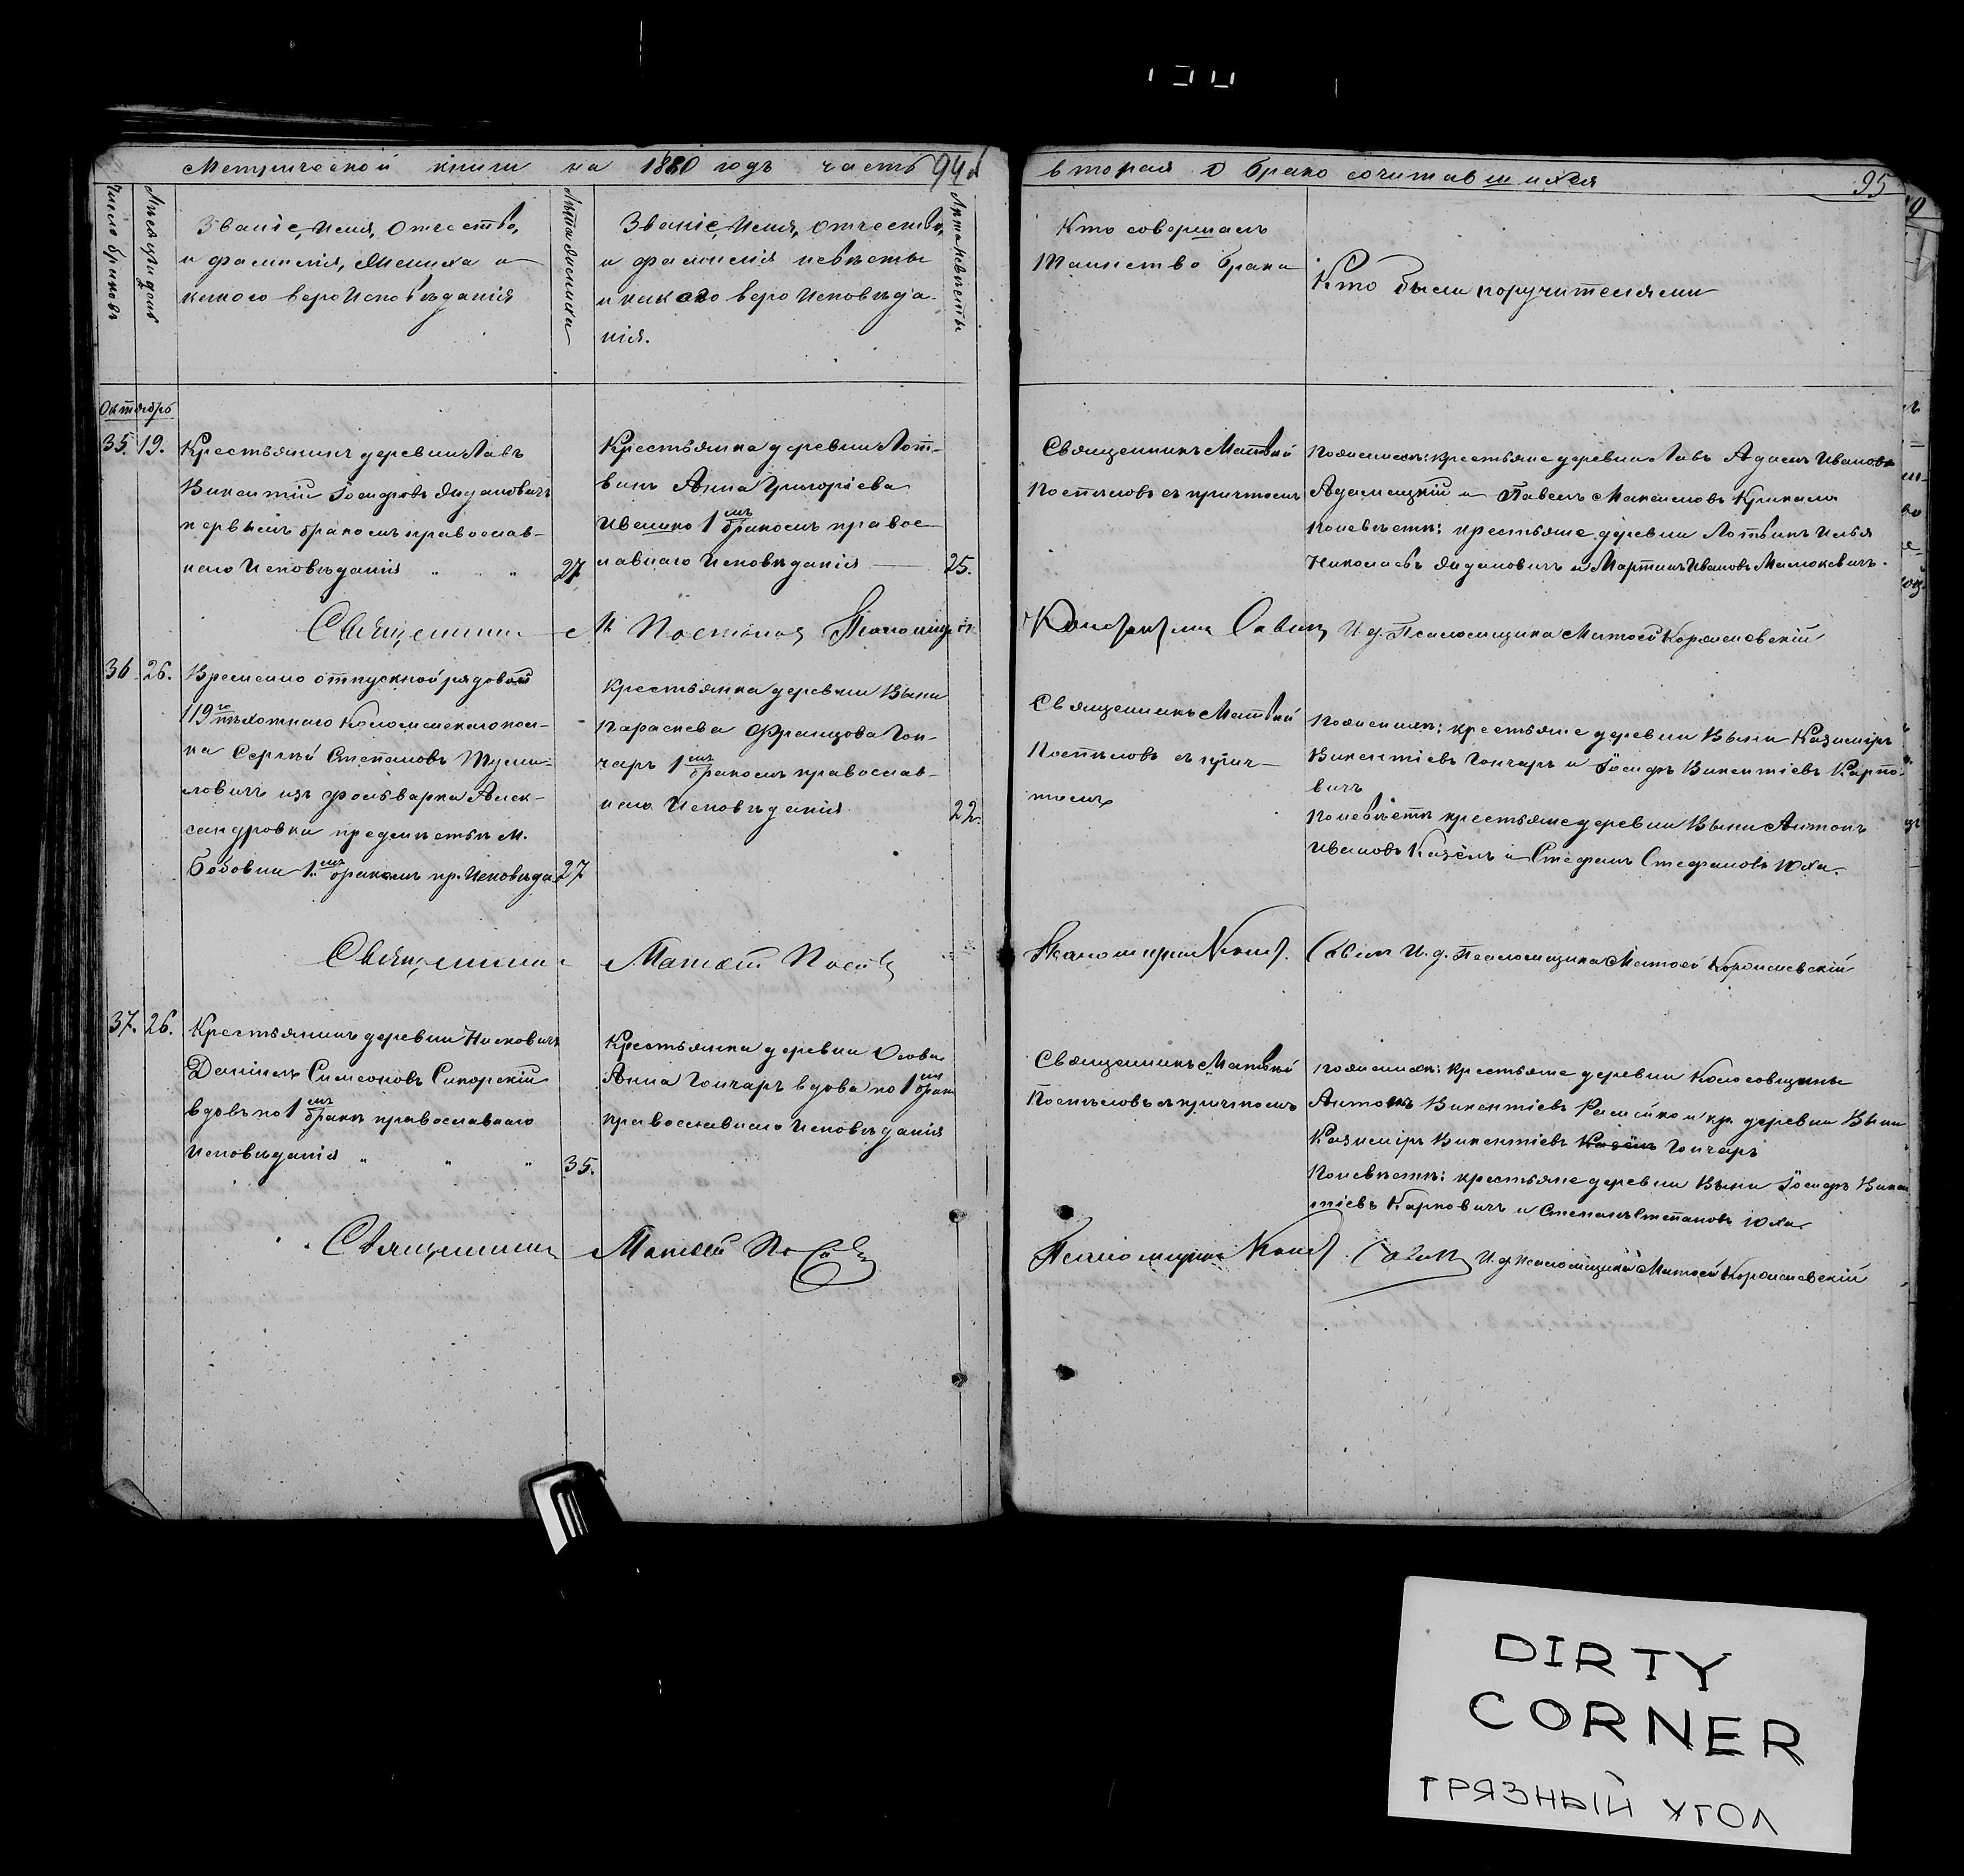 Метрической книги на 1880 годъ часть
94
вторая о бракосочитавшихся
95
Число браковъ
Мѣсяцъ и день
Званіе, Имя, Отчество,
и фамилія, Жениха и
какого вероИсповѣданія
Лѣта жениха
Званіе, Имя, отчество,
и фамилія невѣсты
и какого вероИсповѣда-
нія.
Лѣта невѣсты
Кто совершалъ
Таинство брака
Кто были поручителями
Октябрь
35. 19.
Крестьянинъ деревни Лавъ
Викентій Іосифовъ Жидановичъ
первымъ бракомъ православ-
наго Исповѣданія " "
27
Крестьянка деревни Лот-
винъ Анна Григоріева
Ивашко 1 мъ бракомъ правос-
лавнаго Исповѣданія
25.
Священникъ Матвѣй
Поспѣловъ съ причтомъ
По женихѣ: крестьяне деревни Лавъ Адамъ Ивановъ
Адамицкій и Павелъ Максимовъ
По невѣстѣ: крестьяне деревни Лотвинъ Илья
Николаевъ Жидановичъ и Мартинъ Ивановъ Малюкевичъ.
Священникъ М Поспѣловъ Псаломщикъ
Константинъ Савичъ И. д. Псаломщика Матвѣй
36. 26.
Временно отпускной рядовой
119 го пѣхотнаго Коломенскаго пол-
ка Сергѣй Степановъ
изъ фольварка Алек-
сандровки предмѣстья М.
Бобовни 1. мъ бракомъ пр. Исповѣда
27
Крестьянка деревни Выни
Параскева Францова Гон-
чаръ 1 мъ бракомъ православ-
наго Исповѣданія
22.
Священникъ Матвѣй
Поспѣловъ съ прич-
томъ
По женихѣ: крестьяне деревни Выни Казиміръ
Викентіевъ Гончаръ и Іосифъ Викентіевъ Карпо-
вичъ
По невѣстѣ крестьяне деревни Выни Антонъ
Ивановъ Казёлъ и Стефанъ Стефановъ Юха.
Священникъ Матвѣй
Псаломщикъ Конст. Савичъ И. д. Псаломщика Матвѣй
37. 26.
Крестьянинъ деревни
Даніилъ Симеоновъ Сикорскій
вдовъ по 1 мъ бракѣ православнаго
Исповѣданія " " "
35.
Крестьянка деревни Осова
Анна Гончаръ вдова по 1 мъ брак
православнаго Исповѣданія
Священникъ Матвѣй
Поспѣловъ съ причтомъ
По женихѣ: крестьяне деревни Колосовщины
Антонъ Викентіевъ и кр. деревни Выни
Казиміръ Викентіевъ Казёлъ Гончаръ
По невѣстѣ: крестьяне деревни Выни Іосифъ Викен
тіевъ Карповичъ и Степанъ Степановъ Юха.
Священникъ Матвѣй
Псаломщикъ Конст. Савичъ И. д. псаломщика Матвѣй
DIRTY
CORNER
ГРЯЗНЫЙ УГОЛ